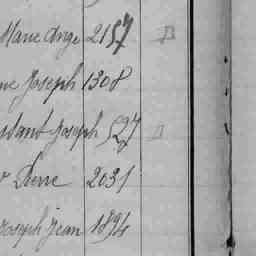 Marie Ange 2157
Joseph 1308
Joseph 527
Pierre 2031
Joseph Jean 1894